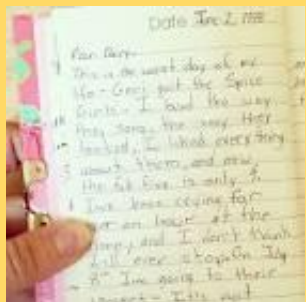 Date June 2, 1998
Dear Diary,
This is the worst day of my
life - Geri quit the Spice
Girls. I loved the way
they sang, the way they
looked, I liked everything
about them, and now
the fab five is only 4.
I've been crying for
over an hour at the
and I don't think
I'll ever stop. On July
I'm going to their
concert - I'll